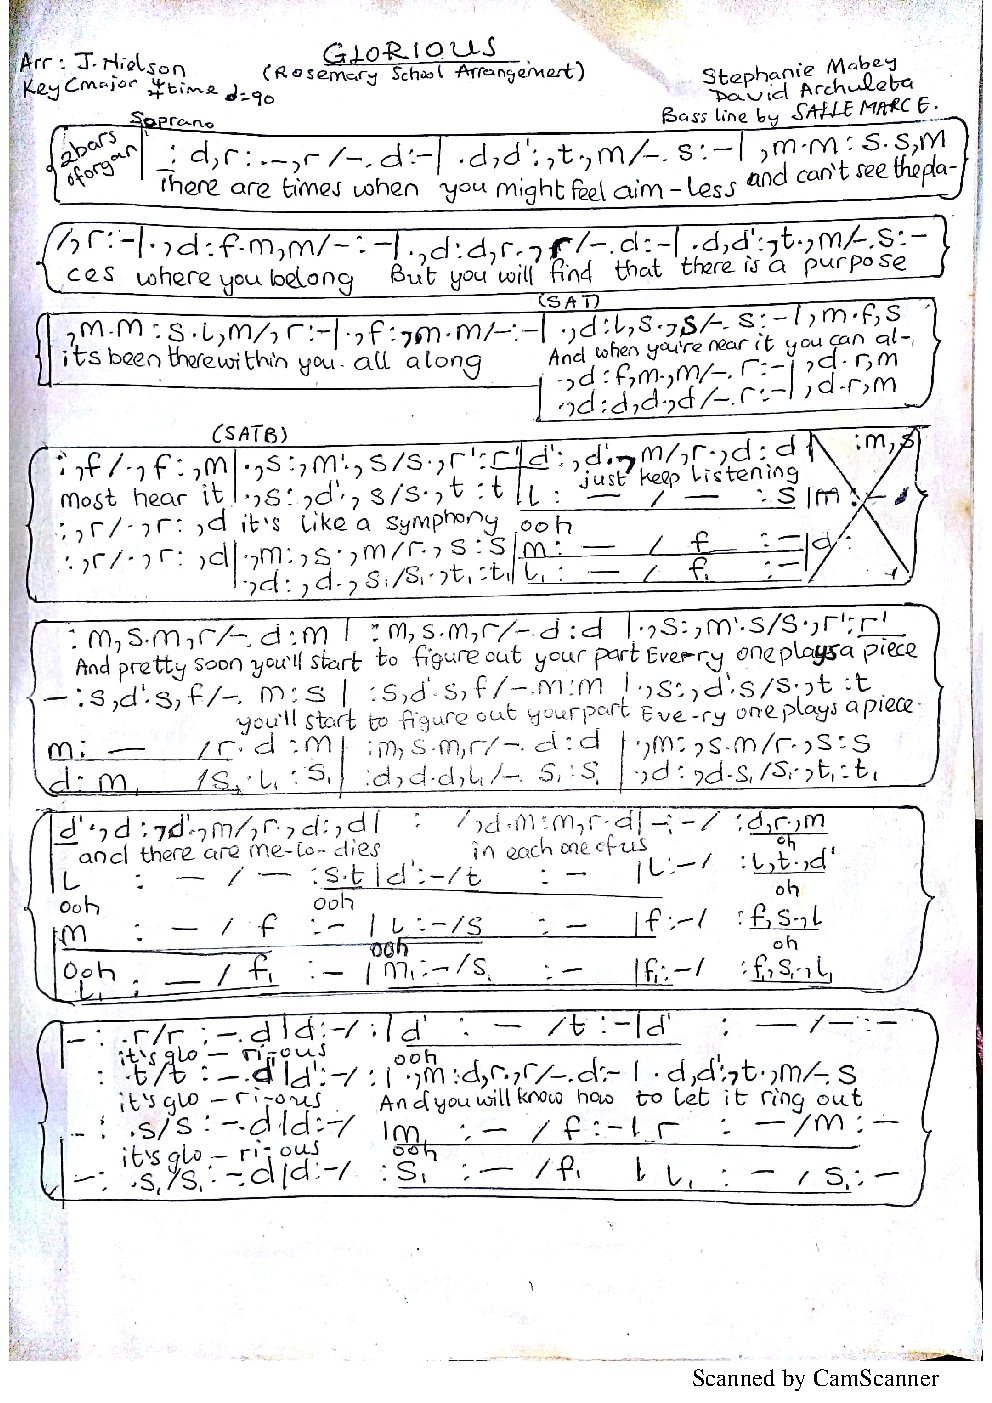 GLORIOUS
(Rosemary School Arrangement)
Arr: J. Nielson
Key C major 4/4 time d=90
Stephanie Mabey
David Archuleta
Bass line by SALLE MARC E.
Soprano
2bars of organ
: d,r:.-,r/-.d:-| .d,d':,t.,m/-.s:-| ,m.m:s.s,m
There are times when you might feel aim-less and can't see the pla-
/,r:-|.,d:f.m,m/-:-|.,d:d,r.,r/-.d:-|.d,d':,t.,m/-.s:-
ces where you belong But you will find that there is a purpose
(SAT)
,m.m:s.l,m/,r:-|.,f:,m.m/-:-| .,d:l,s.,s/-.s:-|,m.f,s
its been there within you. all along And when you're near it you can al-
.,d:f,m.,m/-.r:-| ,d.r,m
.,d:d,d.,d/-.r:-| ,d.r,m
(SATB)
:,f/.,f:,m|.,s:,m'.,s/s.,r':r'|d':,d'.,m/,r.,d:d| :m,s
most hear it just keep listening
.,s:,d'.,s/s.,t:t |l: — / — :s|m:-
:,r/.,r:,d it's like a symphony ooh
:,r/.,r:,d|.,m:,s.,m/r.,s:s|m: — / f :-|d:
.,d:,d.,s₁/s₁.,t₁:t₁|l₁: — / f₁ :-|
:m,s.m,r/-.d:m| :m,s.m,r/-.d:d |.,s:,m'.s/s.,r':r'
And pretty soon you'll start to figure out your part Eve-ry one plays a piece
-:s,d'.s,f/-.m:s| :s,d'.s,f/-.m:m |.,s:,d'.s/s.,t:t
you'll start to figure out your part Eve-ry one plays a piece
m: — /r.d:m| :m,s.m,r/-.d:d |.,m:,s.m/r.,s:s
d:m₁ /s₁.l₁:s₁| :d,d.d,l₁/-.s₁:s₁ |.,d:,d.s₁/s₁.,t₁:t₁
d'.,d:,d'.,m/,r.,d:,d| : /,d.m:m,r.d|-:-/ :d,r.,m
and there are me-lo-dies in each one of us oh
l : — / — :s.t|d':-/t :- |l:-/ :l,t.,d'
ooh ooh oh
m : — / f :-|l:-/s :- |f:-/ :f,s.,l
ooh oh
ooh
l₁ : — / f₁ :-|m₁:-/s₁ :- |f₁:-/ :f₁,s₁.,l₁
-: .r/r:-.d|d:-/:|d' : — /t:-|d' : — /-:-
it's glo-ri-ous ooh
: .t/t:-.d'|d':-/:|.,m:d,r.,r/-.d:-|.d,d':,t.,m/-.s
it's glo-ri-ous And you will know how to let it ring out
-: .s/s:-.d|d:-/ |m :-/f:-|r :-/m:-
it's glo-ri-ous ooh
-: .s₁/s₁:-.d|d:-/ :s₁ :-/f₁ |l₁ :-/s₁:-
Scanned by CamScanner